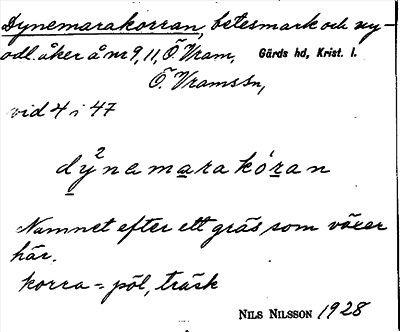 Dynemarakorran, betesmark och ny-
odl. åker å nr 9, 11, Ö Vram, Gärds hd, Krist. l.
Ö. Vramssn,
vid 4 i 47
dy²nemarakóran
Namnet efter ett gräs, som växer
här.
korra = pöl, träsk
NILS NILSSON 1928